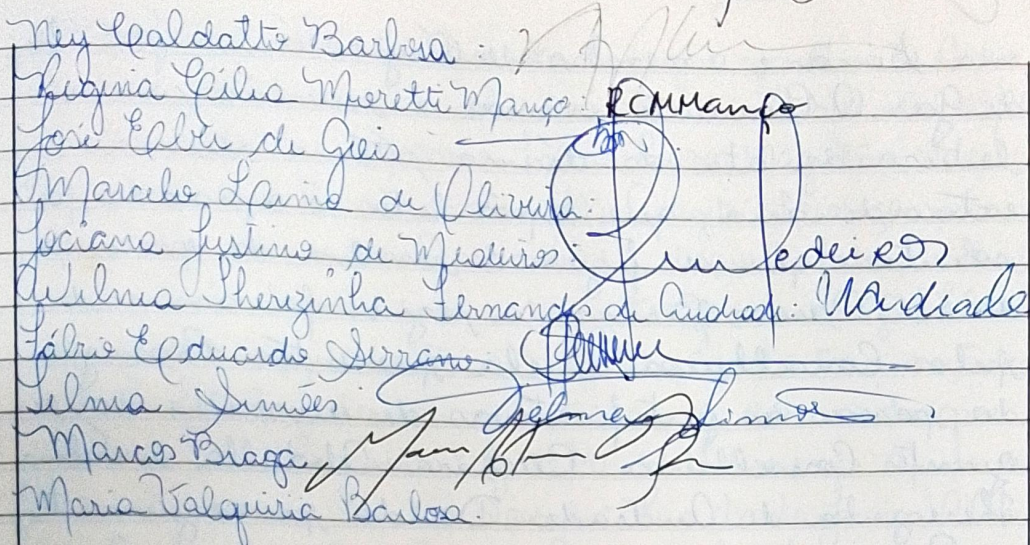 Ney Caldatto Barbosa:
Regina Célia Moretti Manço: RCMManço
José Edvi de Gois
Marcelo de Oliveira:
Luciana Justino de Medeiros: Medeiros
Wilma Therezinha Fernandes de Andrade: WAndrade
Fábio Eduardo Serrano:
Telma Simões Telma Simões
Marcos Braga,
Maria Valquiria Barbosa.